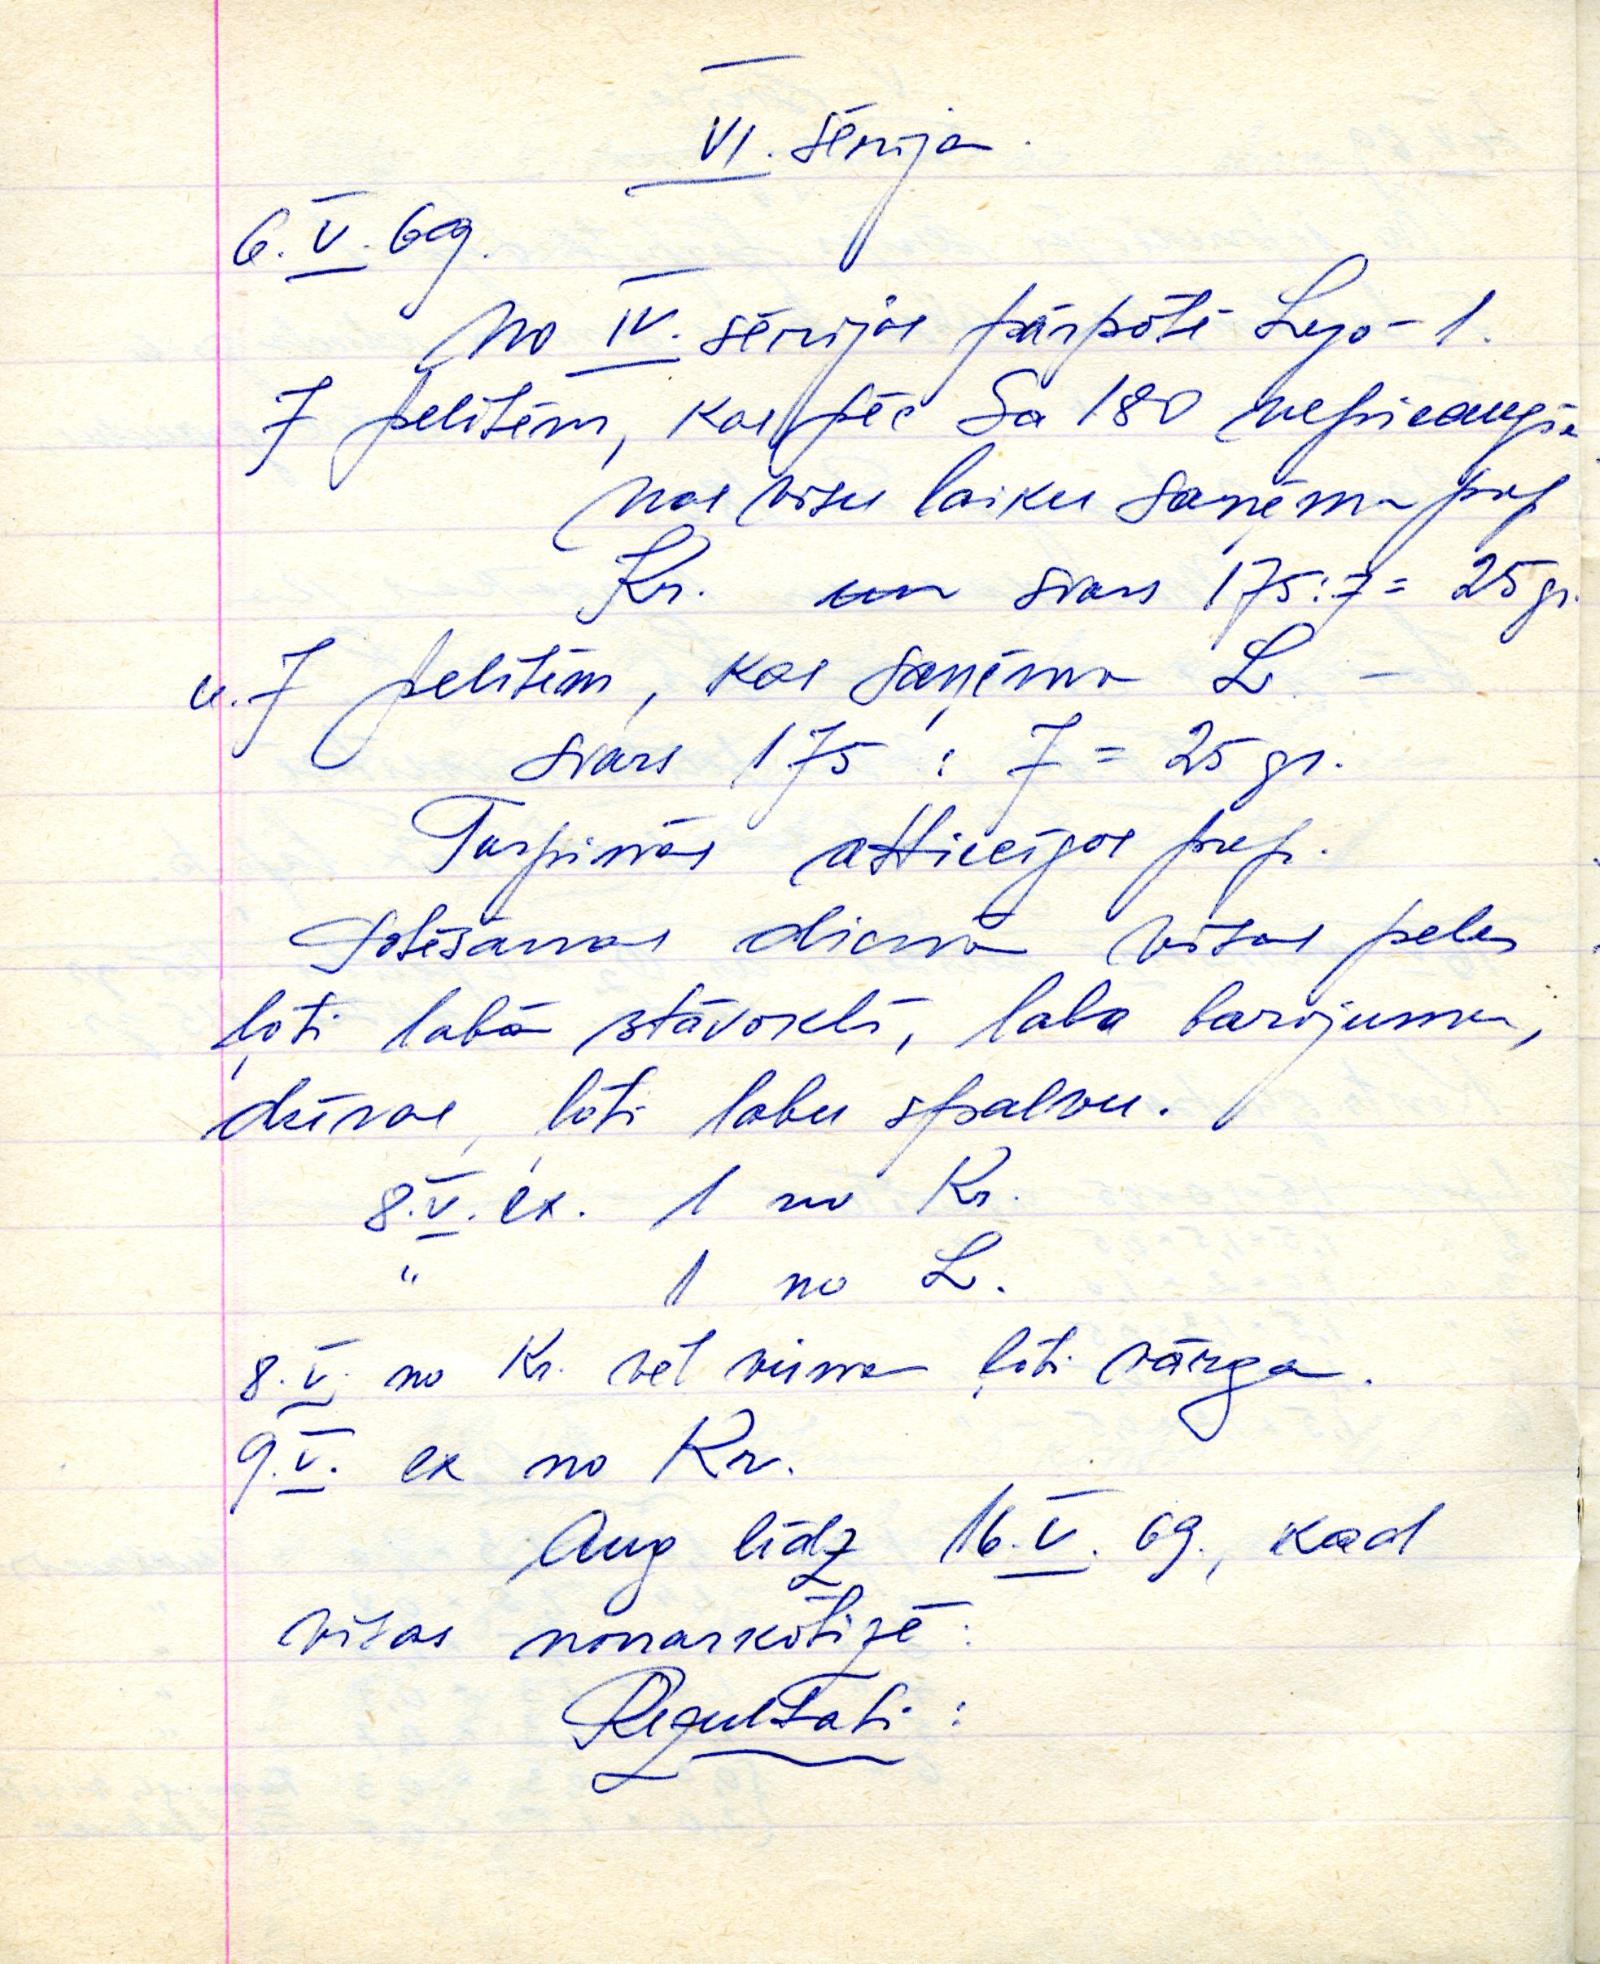 VI. sērija.
6.V.69.
No IV. sērijas pārpotē Lyo-1.
7 pelītēm, kas pēc Sa 180
nas visu laiku saņēma prep
Kr. un svars 175:7= 25gr.
u. 7 pelītēm, kas saņēma L. –
svars 175 : 7 = 25gr.
Turpinās attiecīgos prep.
Potēšanas dienā visas peles
ļoti labā stāvoklī, laba barojuma,
dzīvas, ļoti labu spalvu.
8.V. ex. 1 no Kr.
" 1 no L.
8.V. no Kr. vēl viena ļoti vārga.
9.V. ex no Kr.
Aug līdz 16.V.69., kad
visas nonarkōtizē:
Rezultati: